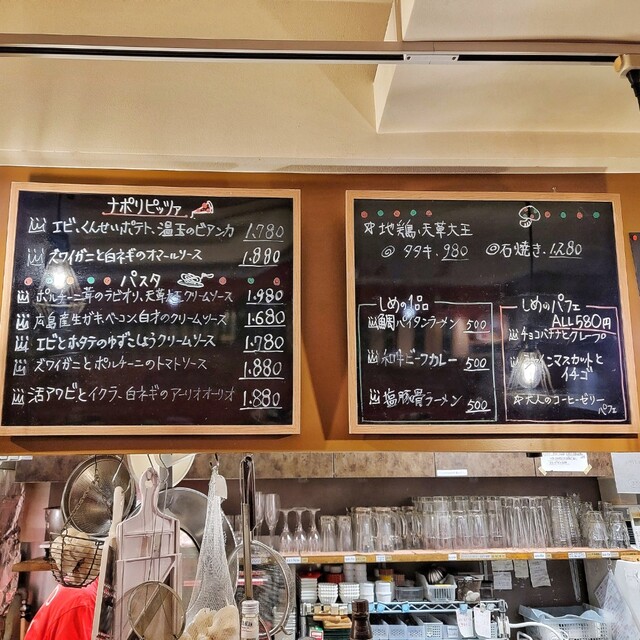 ナポリピッツァ
エビ、くんせいポテト、温玉のビアンカ 1.780
ズワイガニと白ネギのオマールソース 1.880
パスタ
ポルチーニ茸のラビオリ、天草 クリームソース 1.980
広島産生ガキ、ベーコン、白才のクリームソース 1.680
エビとホタテのゆずこしょうクリームソース 1.780
ズワイガニとポルチーニのトマトソース 1.880
活アワビとイクラ、白ネギのアーリオオーリオ 1.880
地鶏、天草大王
◎タタキ. 980 ◎石焼き. 1.280
しめの1品
鯛パイタンラーメン 500
和牛ビーフカレー 500
塩豚骨ラーメン 500
しめのパフェ
ALL580円
チョコバナナとクレープ
インマスカットと
イチゴ
☆大人のコーヒーゼリー
パフェ